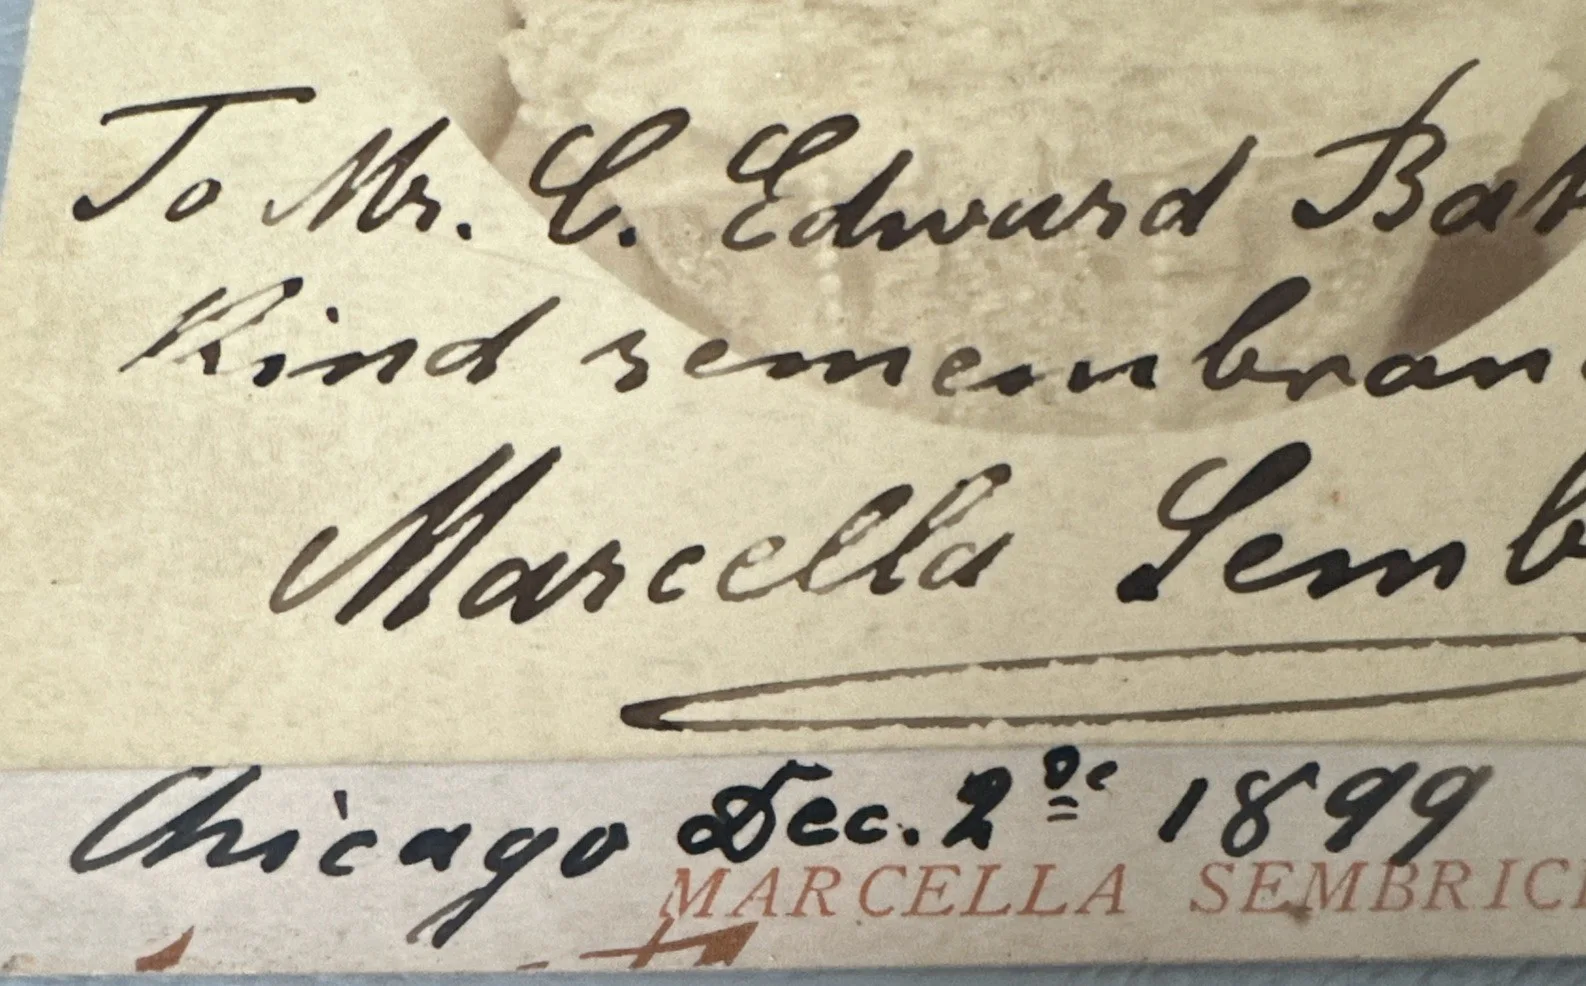 To Mr. C. Edward Bat
Kind remembran
Marcella Semb
Chicago Dec. 2de 1899
MARCELLA SEMBRIC